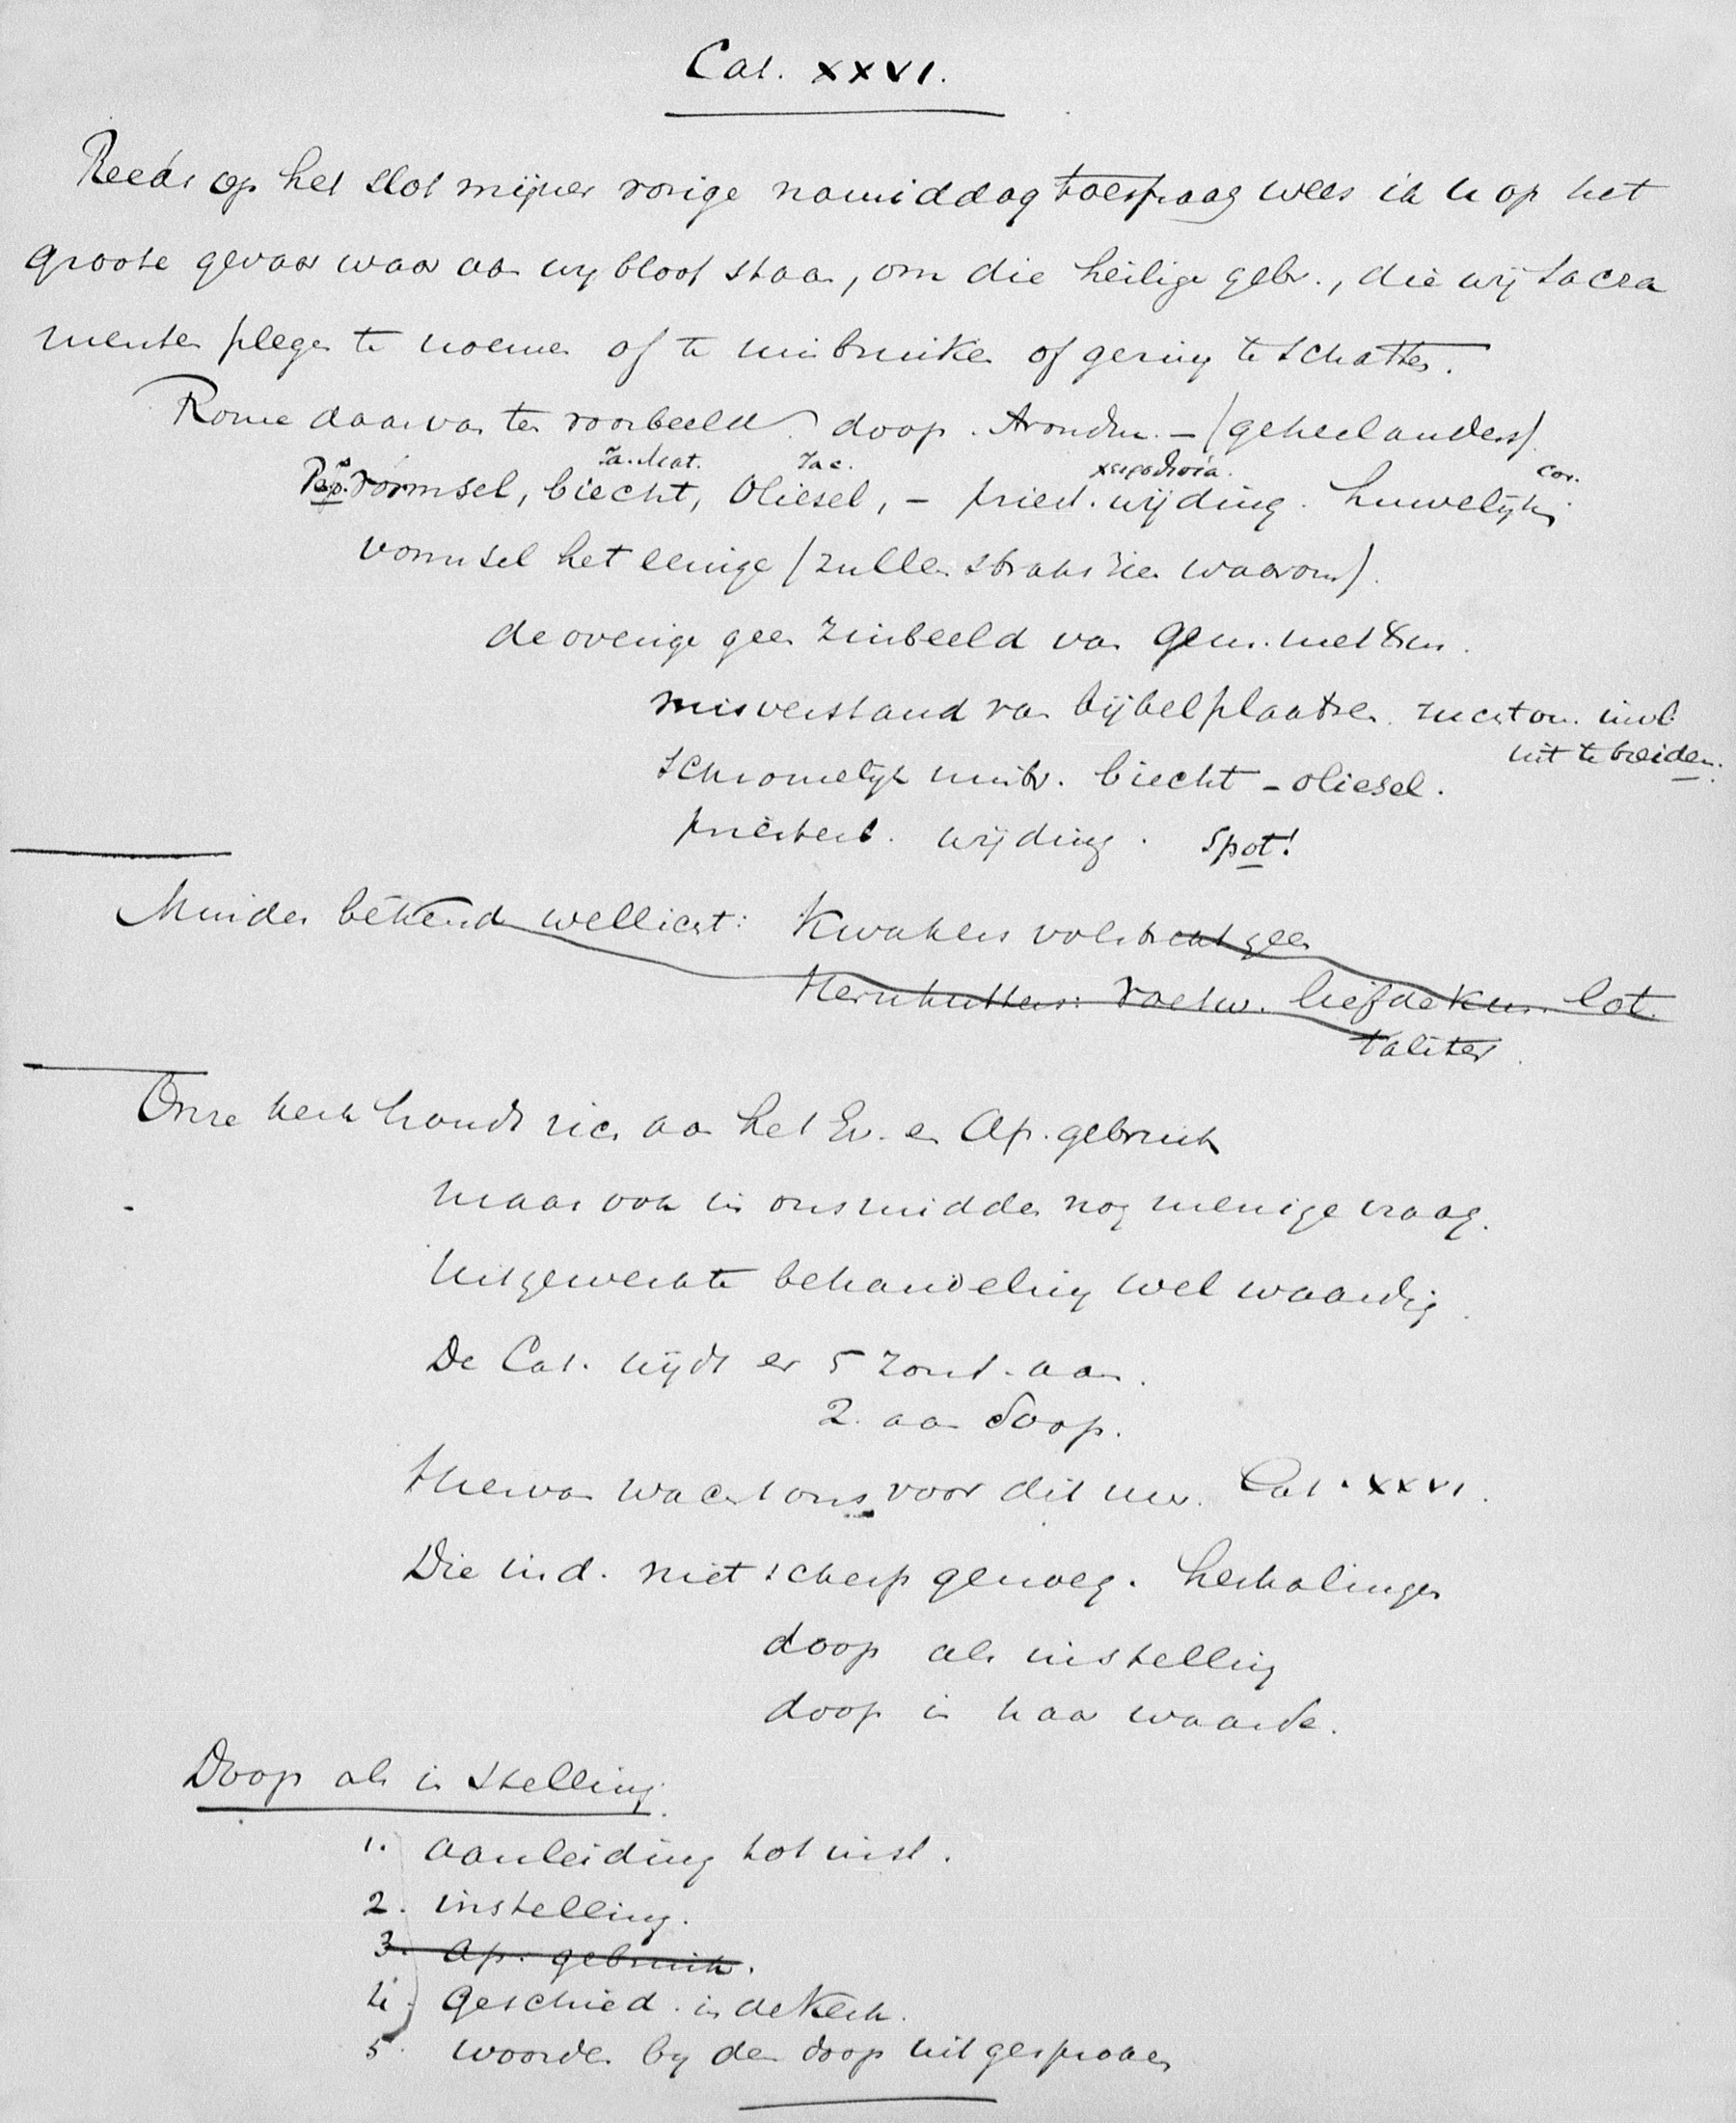 Cat. XXVI.
Reeds op het slot mijner vorige namiddag toespraag wees ik u op het
groote gevaar waar aan wy bloot staan, om die heilige gebr., die wij sacra
menten plegen te noemen of te misbruiken of gering te schatten.
Rome daarvan ten voorbeeld. doop. Avondm. - (geheel anders)
Ja. Mat. Jac. χειροτονία. Cor.
vormsel, biecht, Oliesel, - priest. wijding. huwelijk
vormsel het eenige (zullen straks zien waarom).
de overige geen zinbeeld van gem. met
misverstand van bijbelplaatsen. zucht om invl.
uit te breiden.
schromelijk misbr. biecht - oliesel.
priesterl. wijding. Spot!
Minder bekend wellicht: Kwakers volstrekt geen
Hernhutters: voetw. liefdekus. lot.
Onze kerk houdt zich aan het Ev. en Ap. gebruik
maar ook in ons midden nog menige vraag.
Uitgewerkte behandeling wel waardig.
De Cat. wijdt er 5 zond. aan.
2. aan doop.
Hiervan wacht ons voor dit uur. Cat. XXVI.
Die ind. niet scherp genoeg. herhalingen
doop als instelling
doop in haar waarde.
Doop als in stelling.
1. aanleiding tot inst.
2. instelling.
3. Ap. gebruik.
4. Geschied. in de Kerk.
5. woorden by den doop uitgesproken